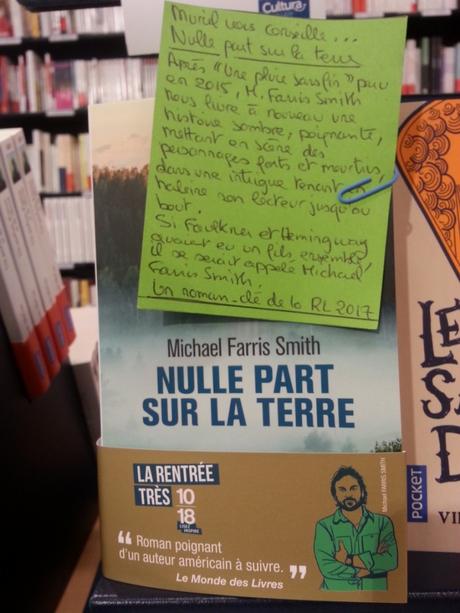 Cultura
Muriel vous conseille...
Nulle part sur la terre
Après "Une pluie sans fin" paru
en 2015, M. Farris Smith
nous livre à nouveau une
histoire sombre, poignante,
mettant en scène des
personnages forts et meurtris,
dans une intrigue tenant en
haleine son lecteur jusqu'au
bout.
Si Faulkner et Hemingway
avaient eu un fils ensemble,
il se serait appelé Michael
Farris Smith.
Un roman-clé de la RL 2017
Michael Farris Smith
NULLE PART
SUR LA TERRE
LA RENTRÉE
TRÈS 10
18
“ Roman poignant
d'un auteur américain à suivre. ”
Le Monde des Livres
Michael FARRIS SMITH
LE
SA
D
POCKET
VI